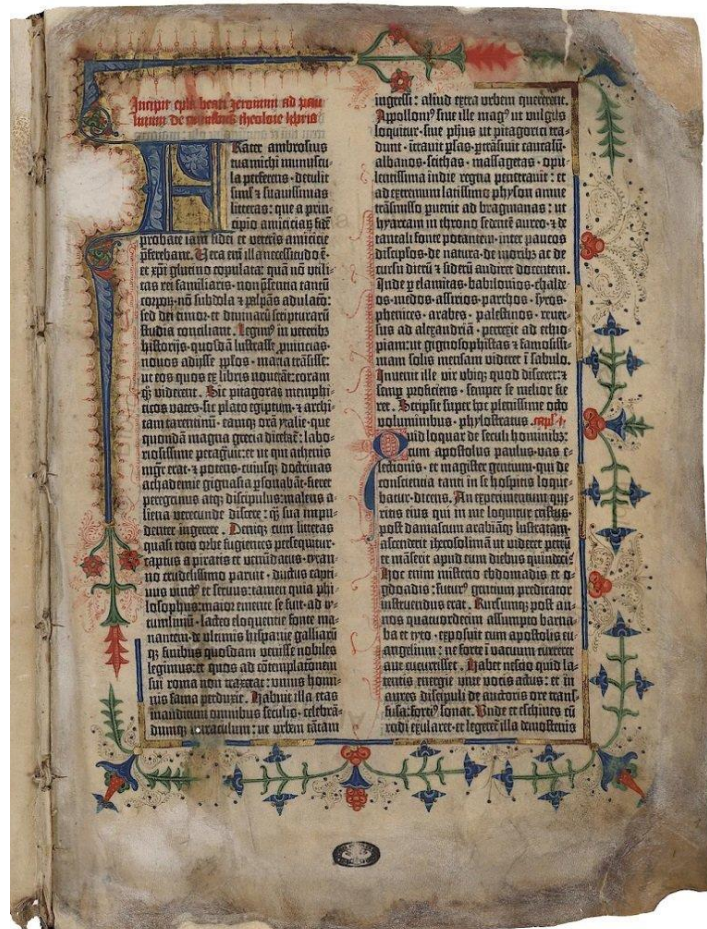 Incipit epistola beati Jeronimi ad pau
linum de omnibus divine historie libris
FRater ambrosius
tua michi munuscu-
la perferens · detulit
simul ⁊ suauissimas
litteras: que a prin-
cipio amiciciaꝝ fidē
probate iam fidei et veteris amicicie
p̄ferebant. Vera enī illa necessitudo ē ·
et xp̄i glutino copulata: quā nō vtili-
tas rei familiaris · non p̄sentia tantū
corpoꝝ · nō subdola ⁊ palpās adulacō:
sed dei timor et diuinarū scripturarū
studia conciliant. Legim⁹ in veterib⁹
historijs · quosdā lustrasse p̄uincias ·
nouos adijsse pp̄los · maria trāsisse:
ut eos quos ex libris nouerāt: coram
qꝫ viderent. Sic pitagoras memphi-
ticos vates · sic plato egiptum · ⁊ archi-
tam tarentinū · eamqꝫ orā ytalie · que
quondā magna grecia dicebat̄: labo-
riosissime peragrauit: et ut qui athenis
mgr̄ erat · ⁊ potens · cuiusqꝫ doctrinas
achademie gignasia psonabāt · fieret
peregrinus atqꝫ discipulus: malens a-
liena verecunde discere: qꝫ sua impu-
denter ingerere. Deniqꝫ cum litteras
quasi toto orbe fugientes persequitur ·
captus a piratis et venūdatus · tyran-
no crudelissimo paruit · ductus capti-
uus vinct⁹ et seruus: tamen quia phi-
losophus: maior emente se fuit · ad ty-
tumlivīu · lacteo eloquentie fonte ma-
nantem · de vltimis hispanie galliarū
qꝫ finibus quosdam venisse nobiles
legimus: et quos ad cōtemplationem
sui roma non traxerat: vnius homi-
nis fama perduxit. Habuit illa etas
inauditum omnibus seculis · celebrā-
dumqꝫ miraculum: ut vrbem tātam
ingressi: aliud extra urbem quererent.
Apolloni⁹ siue ille mag⁹ ut vulgus
loquitur · siue ph̄us ut pitagorici tra-
dunt · ītrauit p̄sas · p̄trāsiuit caucasū ·
albanos · scithas · massagetas · opu-
lentissima indie regna penetrauit: et
ad extremum latissimo physon amne
trāsmisso puenit ad bragmanas: ut
hyarcam in throno sedentē aureo · ⁊ de
tantali fonte potantem · inter paucos
discipłos · de natura · de moribꝫ ac de
cursu dierū ⁊ siderū audiret docentem.
Inde p elamitas · babilonios · chalde-
os · medos · assirios · parthos · syros ·
phenices · arabes · palestinos · reuer-
sus ad alexandriā · perrexit ad ethio-
piam: ut gignosophistas ⁊ famosissi-
mam solis mensam videret ī sabulo.
Inuenit ille vir vbiqꝫ quod disceret: ⁊
semp proficiens · semper se melior fie-
ret. Scripsit super hoc plenissime octo
voluminibus · phylostratus. cap̄·ij·
Quid loquar de seculi hominibꝫ:
cum apostolus paulus · vas e-
lectionis · et magister gentium · qui de
conscientia tanti in se hospitis loque-
batur · dicens. An experimentum que-
ritis eius qui in me loquitur cristus.
post damascum arabiāqꝫ lustratam ·
ascenderit iherosolimā ut videret petrū
et māserit apud eum diebus quindeci.
Hoc enim misterio ebdomadis et o-
gdoadis: futur⁹ gentium predicator
instruendus erat. Rursumqꝫ post an-
nos quatuordecim assumpto barna-
ba et tyto · exposuit cum apostolis eu-
angelium: ne forte ī vacuum curreret
aut cucurrisset. Habet nescio quid la-
tentis energie viue vocis actus: et in
aures discipuli de auctoris ore trans-
fusa: forti⁹ sonat. Vnde et eschines cū
rodi exularet · et legeret̄ illa demostenis